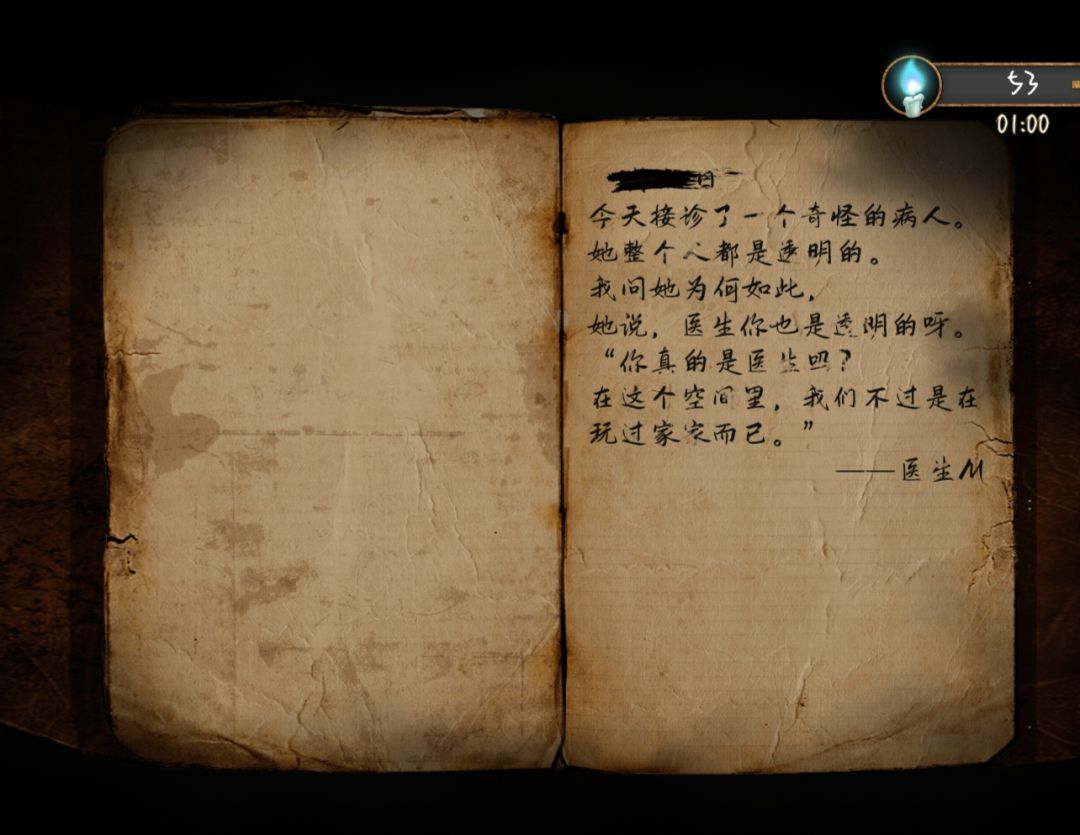 53
01:00
日
今天接诊了一个奇怪的病人。
她整个人都是透明的。
我问她为何如此，
她说，医生你也是透明的呀。
“你真的是医生吗？
在这个空间里，我们不过是在
玩过家家而已。”
——医生M